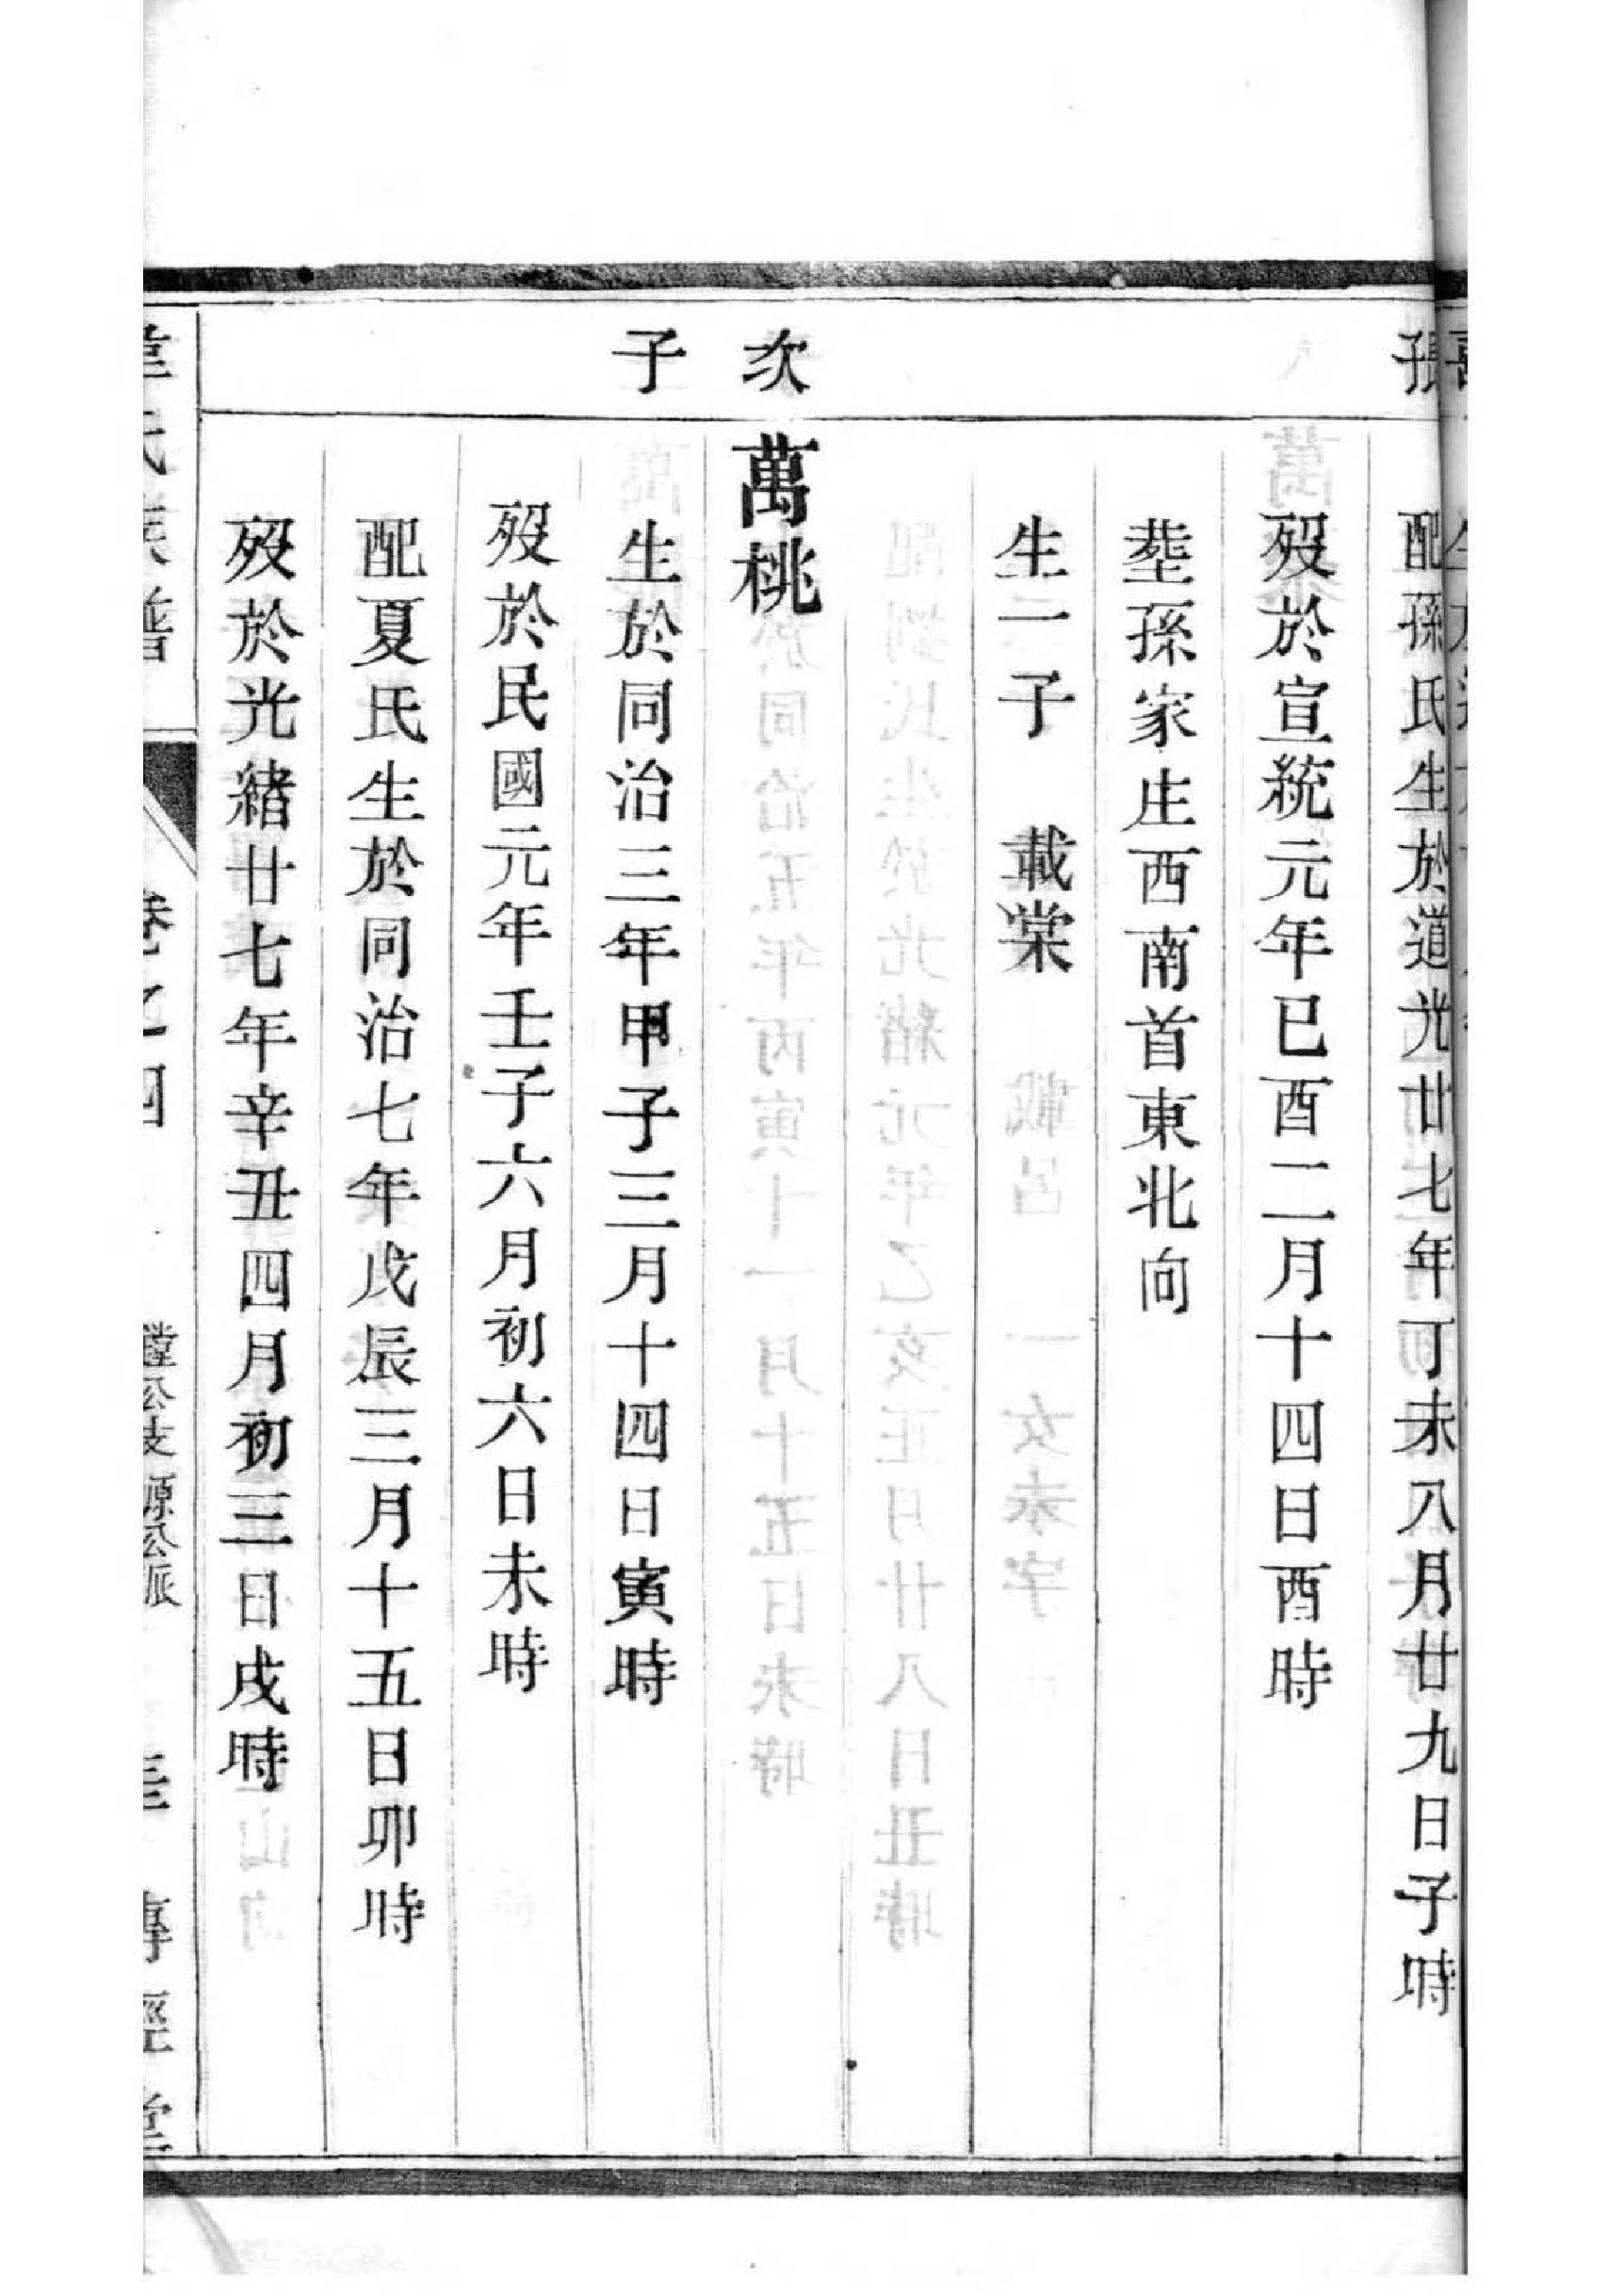 配孫氏生於道光廿七年丁未八月廿九日子時
歿於宣統元年巳酉二月十四日酉時
塟孫家庄西南首東北向
生一子 載棠
次子
萬桃
生於同治三年甲子三月十四日寅時
歿於民國元年壬子六月初六日未時
配夏氏生於同治七年戊辰三月十五日卯時
歿於光緒廿七年辛丑四月初三日戌時
氏族譜 卷之四 公支源公派 傳經堂